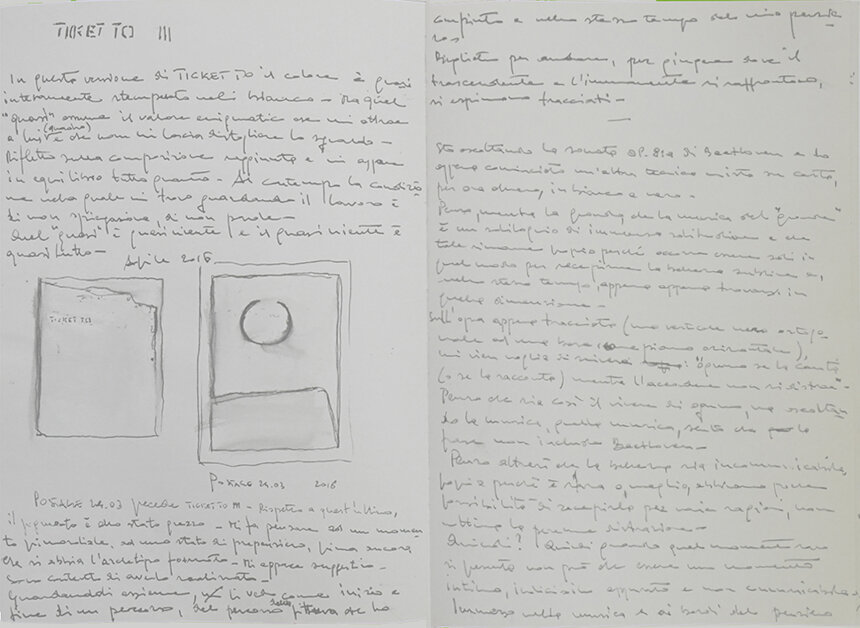 TICKETTO III
In questa versione di TICKETTO il colore è quasi
interamente stemperato nel bianco - Ma quel
"quasi" assume il valore enigmatico che mi attrae
(quadro)
e che non mi lascia distogliere lo sguardo -
Rifletto sulla composizione raggiunta e mi appare
in equilibrio tutto quanto - Al contempo la condizio
ne nella quale mi trovo guardando il lavoro è
di non spiegazione, di non parole -
Quel "quasi" è quasi niente e il quasi niente è
quasi tutto -
Aprile 2016
TICKETTO
POSTALE 24.03 2016
POSTALE 24.03 precede TICKETTO III - Rispetto a quest'ultimo,
il pigmento è allo stato grezzo - Mi fa pensare ad un momen
to primordiale, ad uno stato di prepensiero, prima ancora
che si abbia l'archetipo formato - Mi appare suggestivo -
Sono contento di averlo realizzato -
Guardandoli assieme, li vedo come inizio e
fine di un percorso, del percorso della pittura che ho
compiuto e nello stesso tempo del mio pensie
ro -
Biglietto per andare, per giungere dove il
trascendente e l'immanente si raffrontano,
si esprimono tracciati -
Sto ascoltando la sonata op. 81a di Beethoven e ho
appena cominciato un'altra tecnica mista su carta,
per ora almeno, in bianco e nero -
Penso, mentre la grandezza della musica del "grande"
è un soliloquio di immensa solitudine e che
tale rimane proprio perché occorre essere soli in
quel modo per recepirne la bellezza sublime e,
nello stesso tempo, appena appena trovarsi in
quella dimensione -
Sull'opera appena tracciata (una verticale nera ortogo
nale ad una base come piano orizzontale),
mi vien voglia di scrivere: "Ognuno se la canta
(o se la racconta) mentre l'accordo non si distrae" -
Penso che sia così il vivere di ognuno, ma ascoltan
do la musica, quella musica, sento che le
frase non include Beethoven -
Penso altresì che la bellezza sia incomunicabile,
proprio perché è rara o, meglio, abbiamo poche
possibilità di recepirla per varie ragioni, non
ultima la comune distrazione -
Quindi? Quindi quando quel momento raro
si presenta non può che essere un momento
intimo, indicibile appunto e non comunicabile -
Immerso nella musica e ai bordi del pensiero